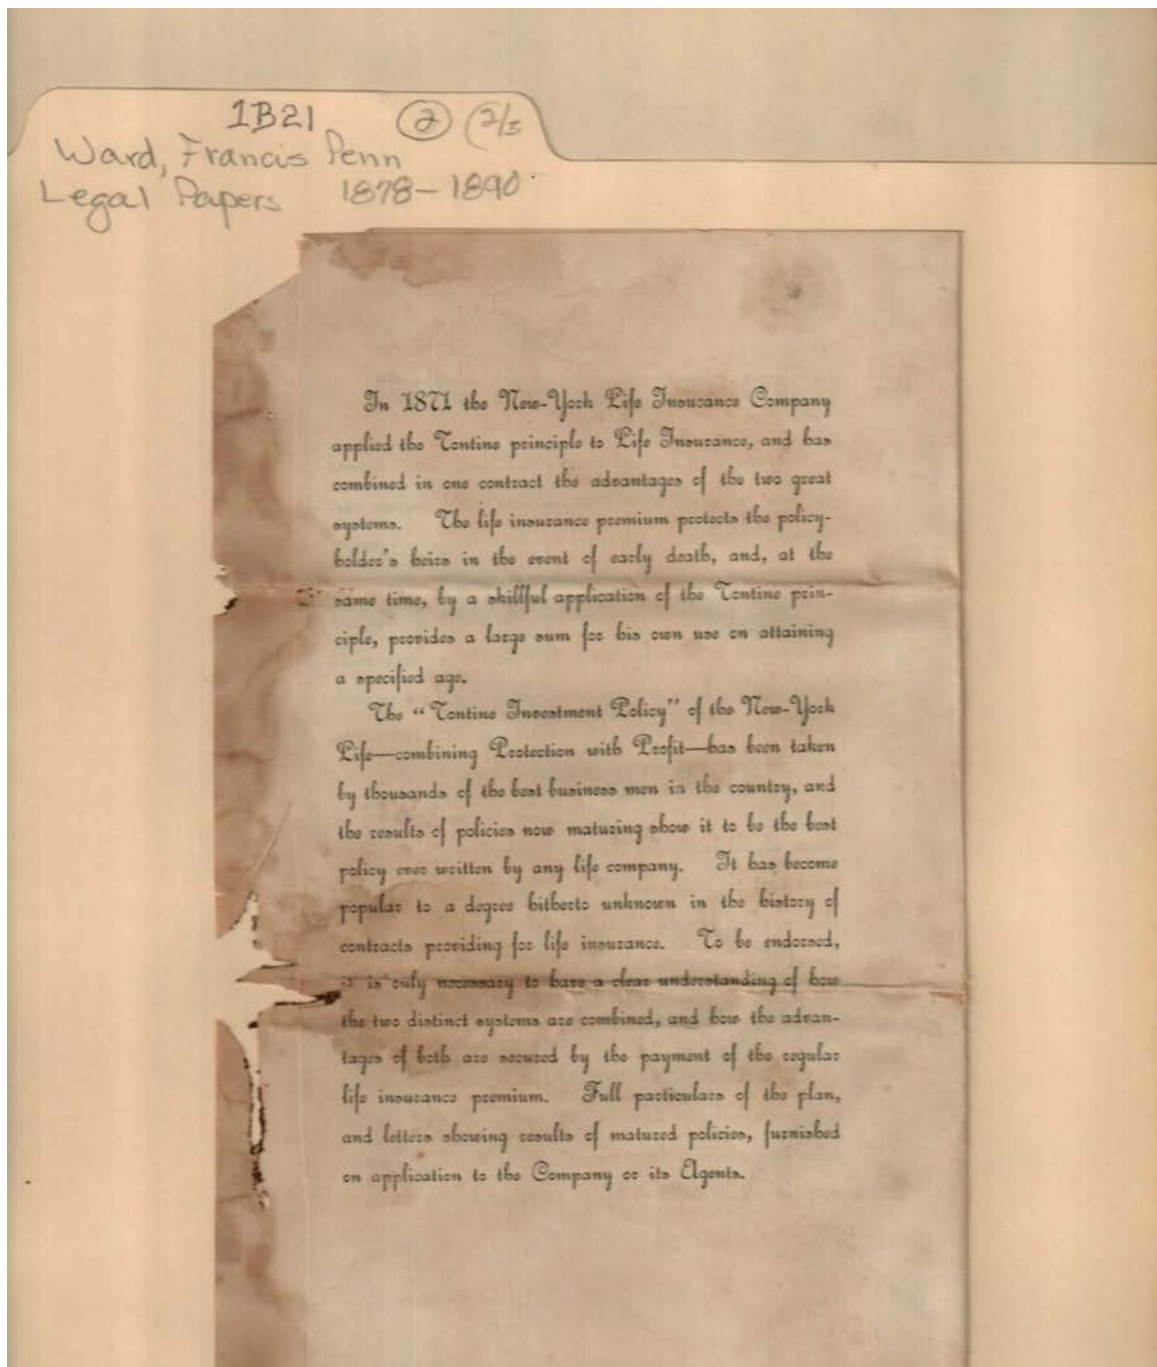 1B21 2 (2/5
Ward, Francis Penn
Legal Papers 1878-1890
In 1871 the New-York Life Insurance Company
applied the Tontine principle to Life Insurance, and has
combined in one contract the advantages of the two great
systems. The life insurance premium protects the policy-
holder's heirs in the event of early death, and, at the
same time, by a skillful application of the Tontine prin-
ciple, provides a large sum for his own use on attaining
a specified age.
The "Tontine Investment Policy" of the New-York
Life—combining Protection with Profit—has been taken
by thousands of the best business men in the country, and
the results of policies now maturing show it to be the best
policy ever written by any life company. It has become
popular to a degree hitherto unknown in the history of
contracts providing for life insurance. To be endorsed,
it is only necessary to have a clear understanding of how
the two distinct systems are combined, and how the advan-
tages of both are secured by the payment of the regular
life insurance premium. Full particulars of the plan,
and letters showing results of matured policies, furnished
on application to the Company or its Agents.